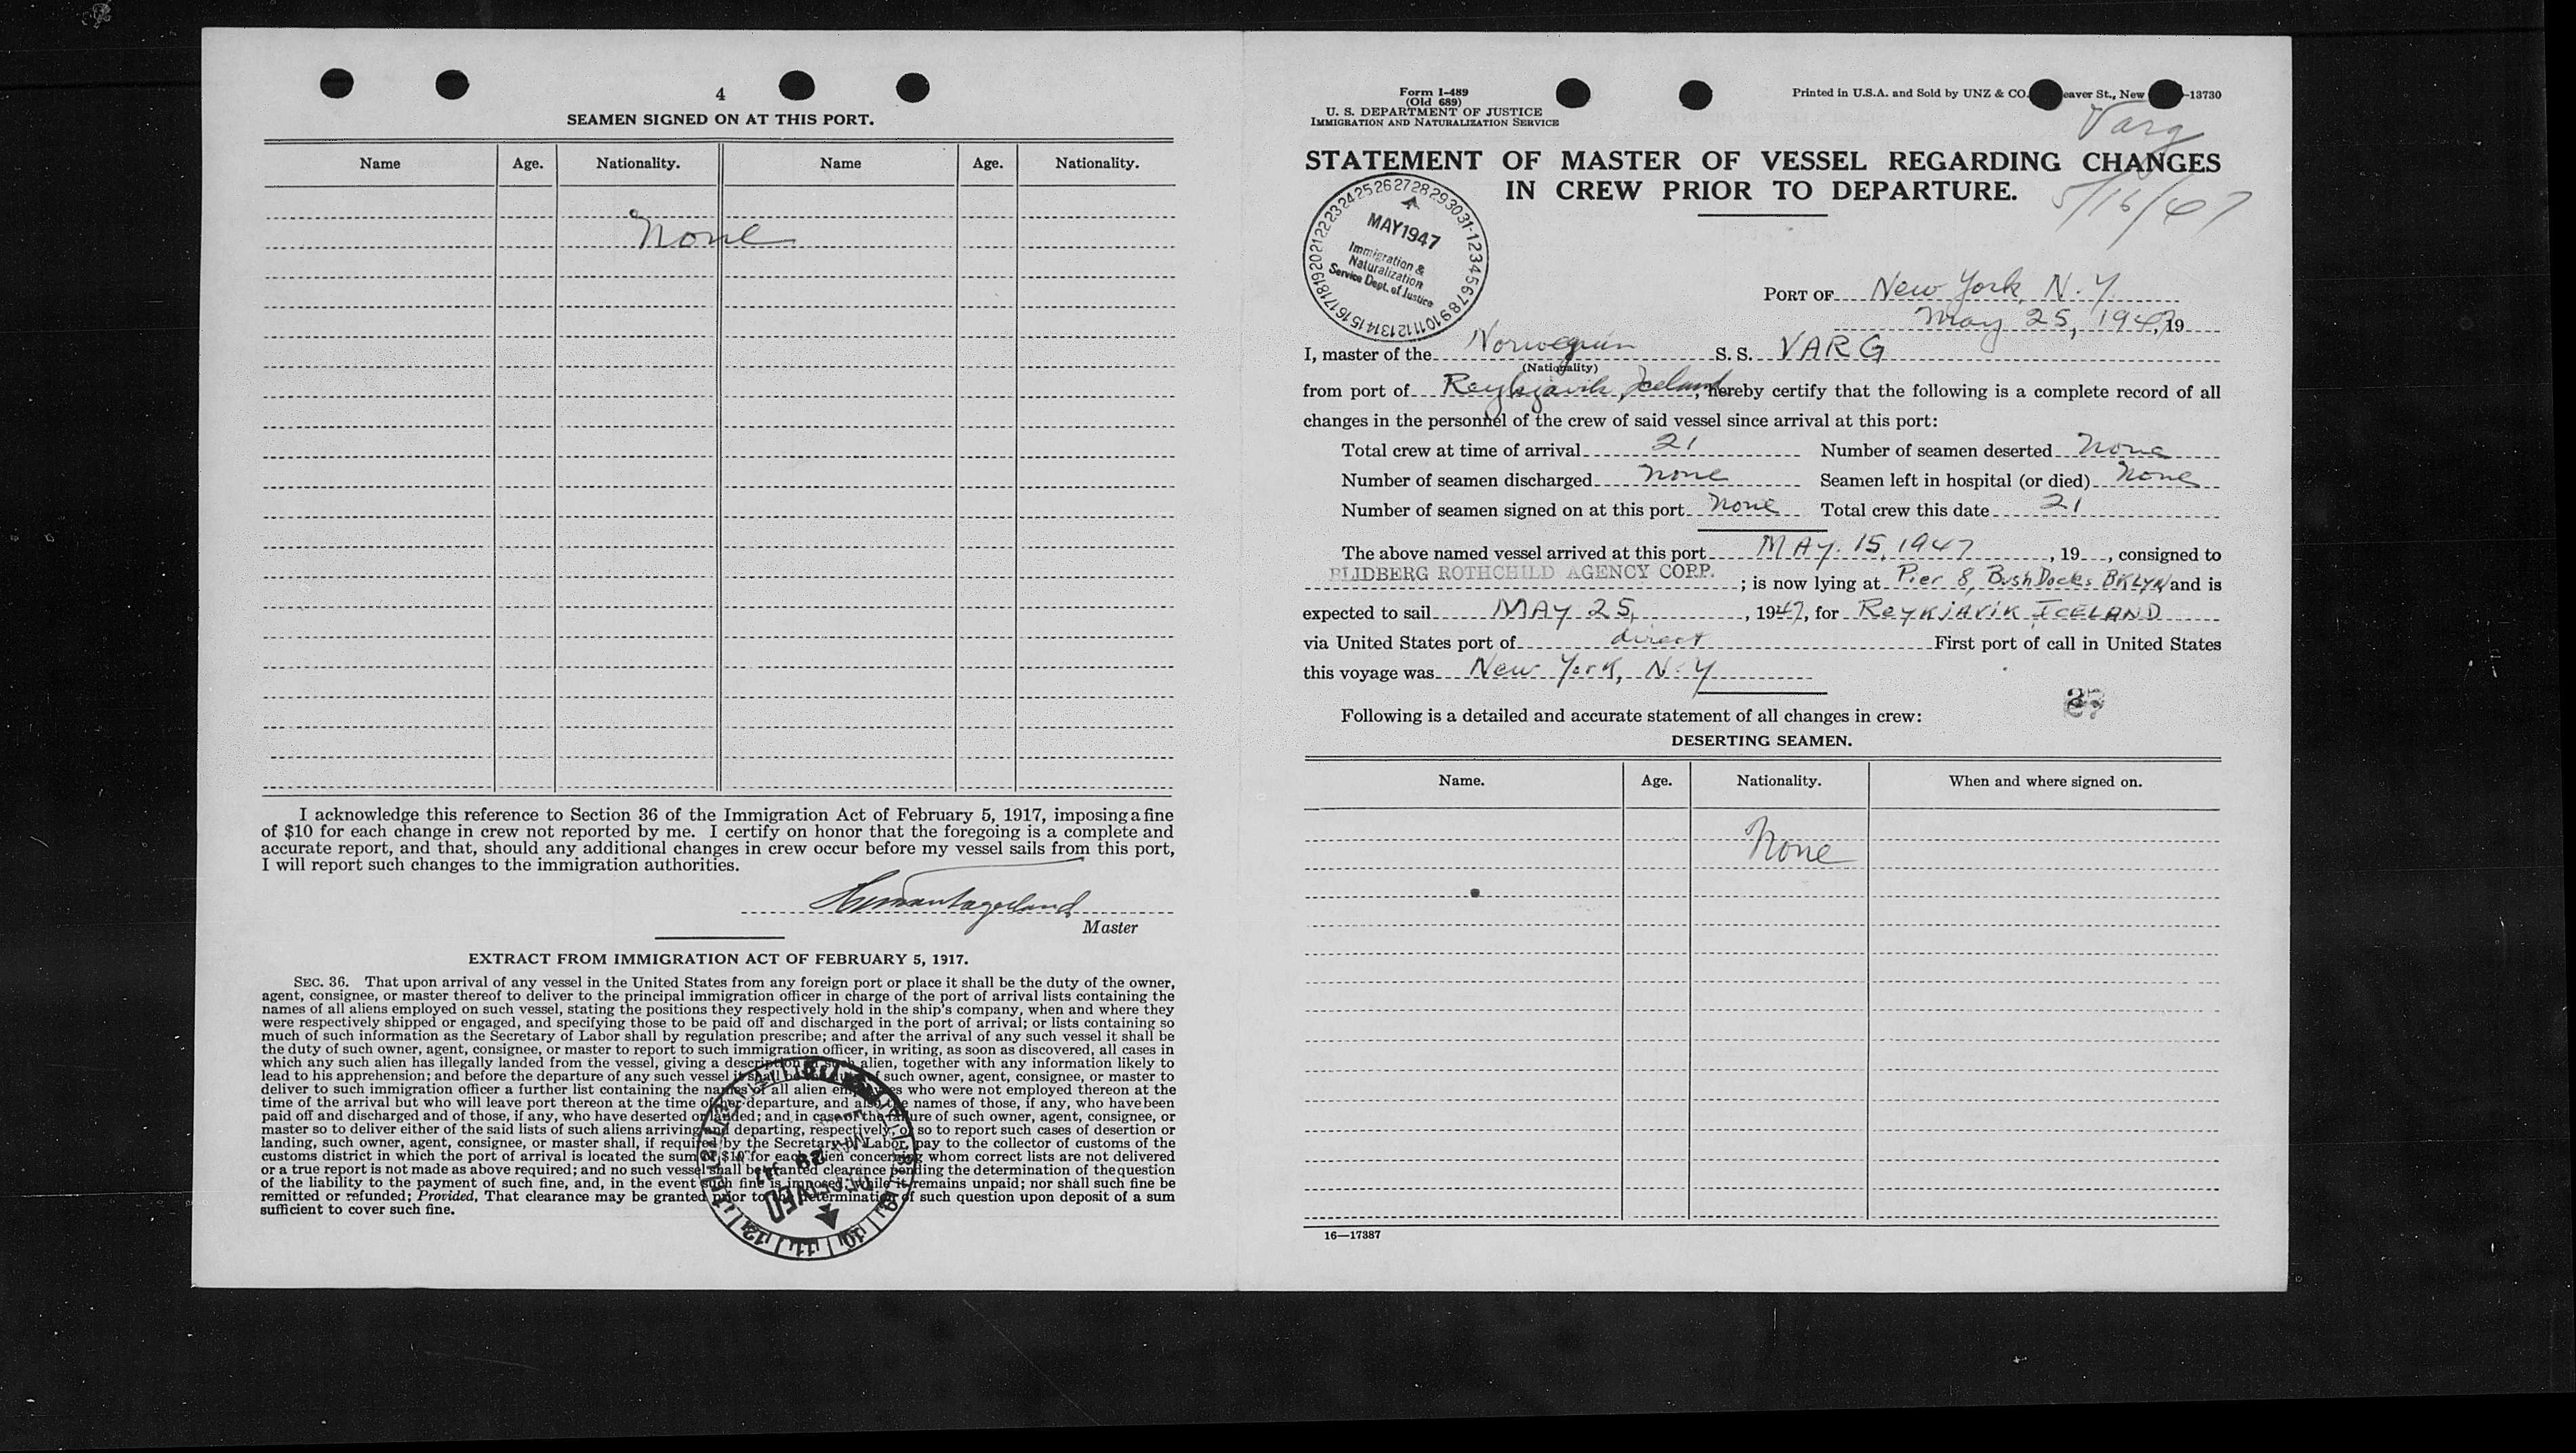 4
SEAMEN SIGNED ON AT THIS PORT.
Name Age. Nationality. Name Age. Nationality.
None
I acknowledge this reference to Section 36 of the Immigration Act of February 5, 1917, imposing a fine
of $10 for each change in crew not reported by me. I certify on honor that the foregoing is a complete and
accurate report, and that, should any additional changes in crew occur before my vessel sails from this port,
I will report such changes to the immigration authorities.
Master
EXTRACT FROM IMMIGRATION ACT OF FEBRUARY 5, 1917.
SEC. 36. That upon arrival of any vessel in the United States from any foreign port or place it shall be the duty of the owner,
agent, consignee, or master thereof to deliver to the principal immigration officer in charge of the port of arrival lists containing the
names of all aliens employed on such vessel, stating the positions they respectively hold in the ship's company, when and where they
were respectively shipped or engaged, and specifying those to be paid off and discharged in the port of arrival; or lists containing so
much of such information as the Secretary of Labor shall by regulation prescribe; and after the arrival of any such vessel it shall be
the duty of such owner, agent, consignee, or master to report to such immigration officer, in writing, as soon as discovered, all cases in
which any such alien has illegally landed from the vessel, giving a description of such alien, together with any information likely to
lead to his apprehension; and before the departure of any such vessel it shall be the duty of such owner, agent, consignee, or master to
deliver to such immigration officer a further list containing the names of all alien employees who were not employed thereon at the
time of the arrival but who will leave port thereon at the time of her departure, and also the names of those, if any, who have been
paid off and discharged and of those, if any, who have deserted or landed; and in case of the failure of such owner, agent, consignee, or
master so to deliver either of the said lists of such aliens arriving and departing, respectively, or so to report such cases of desertion or
landing, such owner, agent, consignee, or master shall, if required by the Secretary of Labor, pay to the collector of customs of the
customs district in which the port of arrival is located the sum of $10 for each alien concerning whom correct lists are not delivered
or a true report is not made as above required; and no such vessel shall be granted clearance pending the determination of the question
of the liability to the payment of such fine, and, in the event such fine is imposed, while it remains unpaid; nor shall such fine be
remitted or refunded; Provided, That clearance may be granted prior to the determination of such question upon deposit of a sum
sufficient to cover such fine.
RECEIVED
Form I-489
(Old 689)
U. S. DEPARTMENT OF JUSTICE
IMMIGRATION AND NATURALIZATION SERVICE
Printed in U.S.A. and Sold by UNZ & CO. eaver St., New -13730
Varg
STATEMENT OF MASTER OF VESSEL REGARDING CHANGES
IN CREW PRIOR TO DEPARTURE.
5/16/47
MAY 1947
Immigration &
Naturalization
Service Dept. of Justice
PORT OF New York, N.Y.
May 25, 1947, 19
I, master of the Norwegian S. S. VARG
(Nationality)
from port of Reykjavik, Iceland, hereby certify that the following is a complete record of all
changes in the personnel of the crew of said vessel since arrival at this port:
Total crew at time of arrival 21 Number of seamen deserted None
Number of seamen discharged None Seamen left in hospital (or died) None
Number of seamen signed on at this port None Total crew this date 21
The above named vessel arrived at this port MAY. 15, 1947, 19 , consigned to
BLIDBERG ROTHCHILD AGENCY CORP. ; is now lying at Pier 8, Bush Docks BKLYN and is
expected to sail MAY 25, , 1947, for REYKJAVIK ICELAND
via United States port of direct First port of call in United States
this voyage was New York, N.Y
Following is a detailed and accurate statement of all changes in crew:
DESERTING SEAMEN.
Name. Age. Nationality. When and where signed on.
None
16—17387